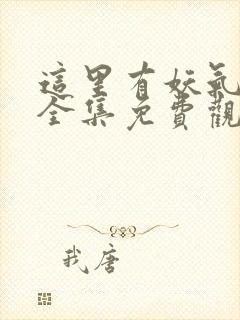 這里有妖氣
全集免費觀
我唐